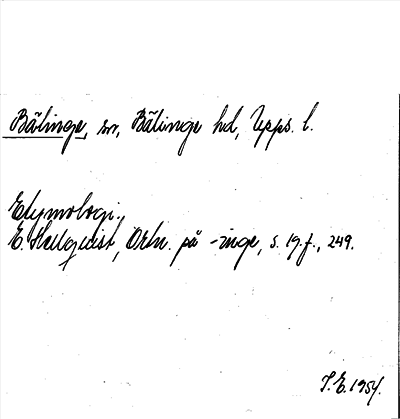 Bälinge, sn, Bälinge hd, Upps. l.
Etymologi.
E. Hellquist, Ortn. på -inge, s. 19 f., 249.
I. E. 1954.